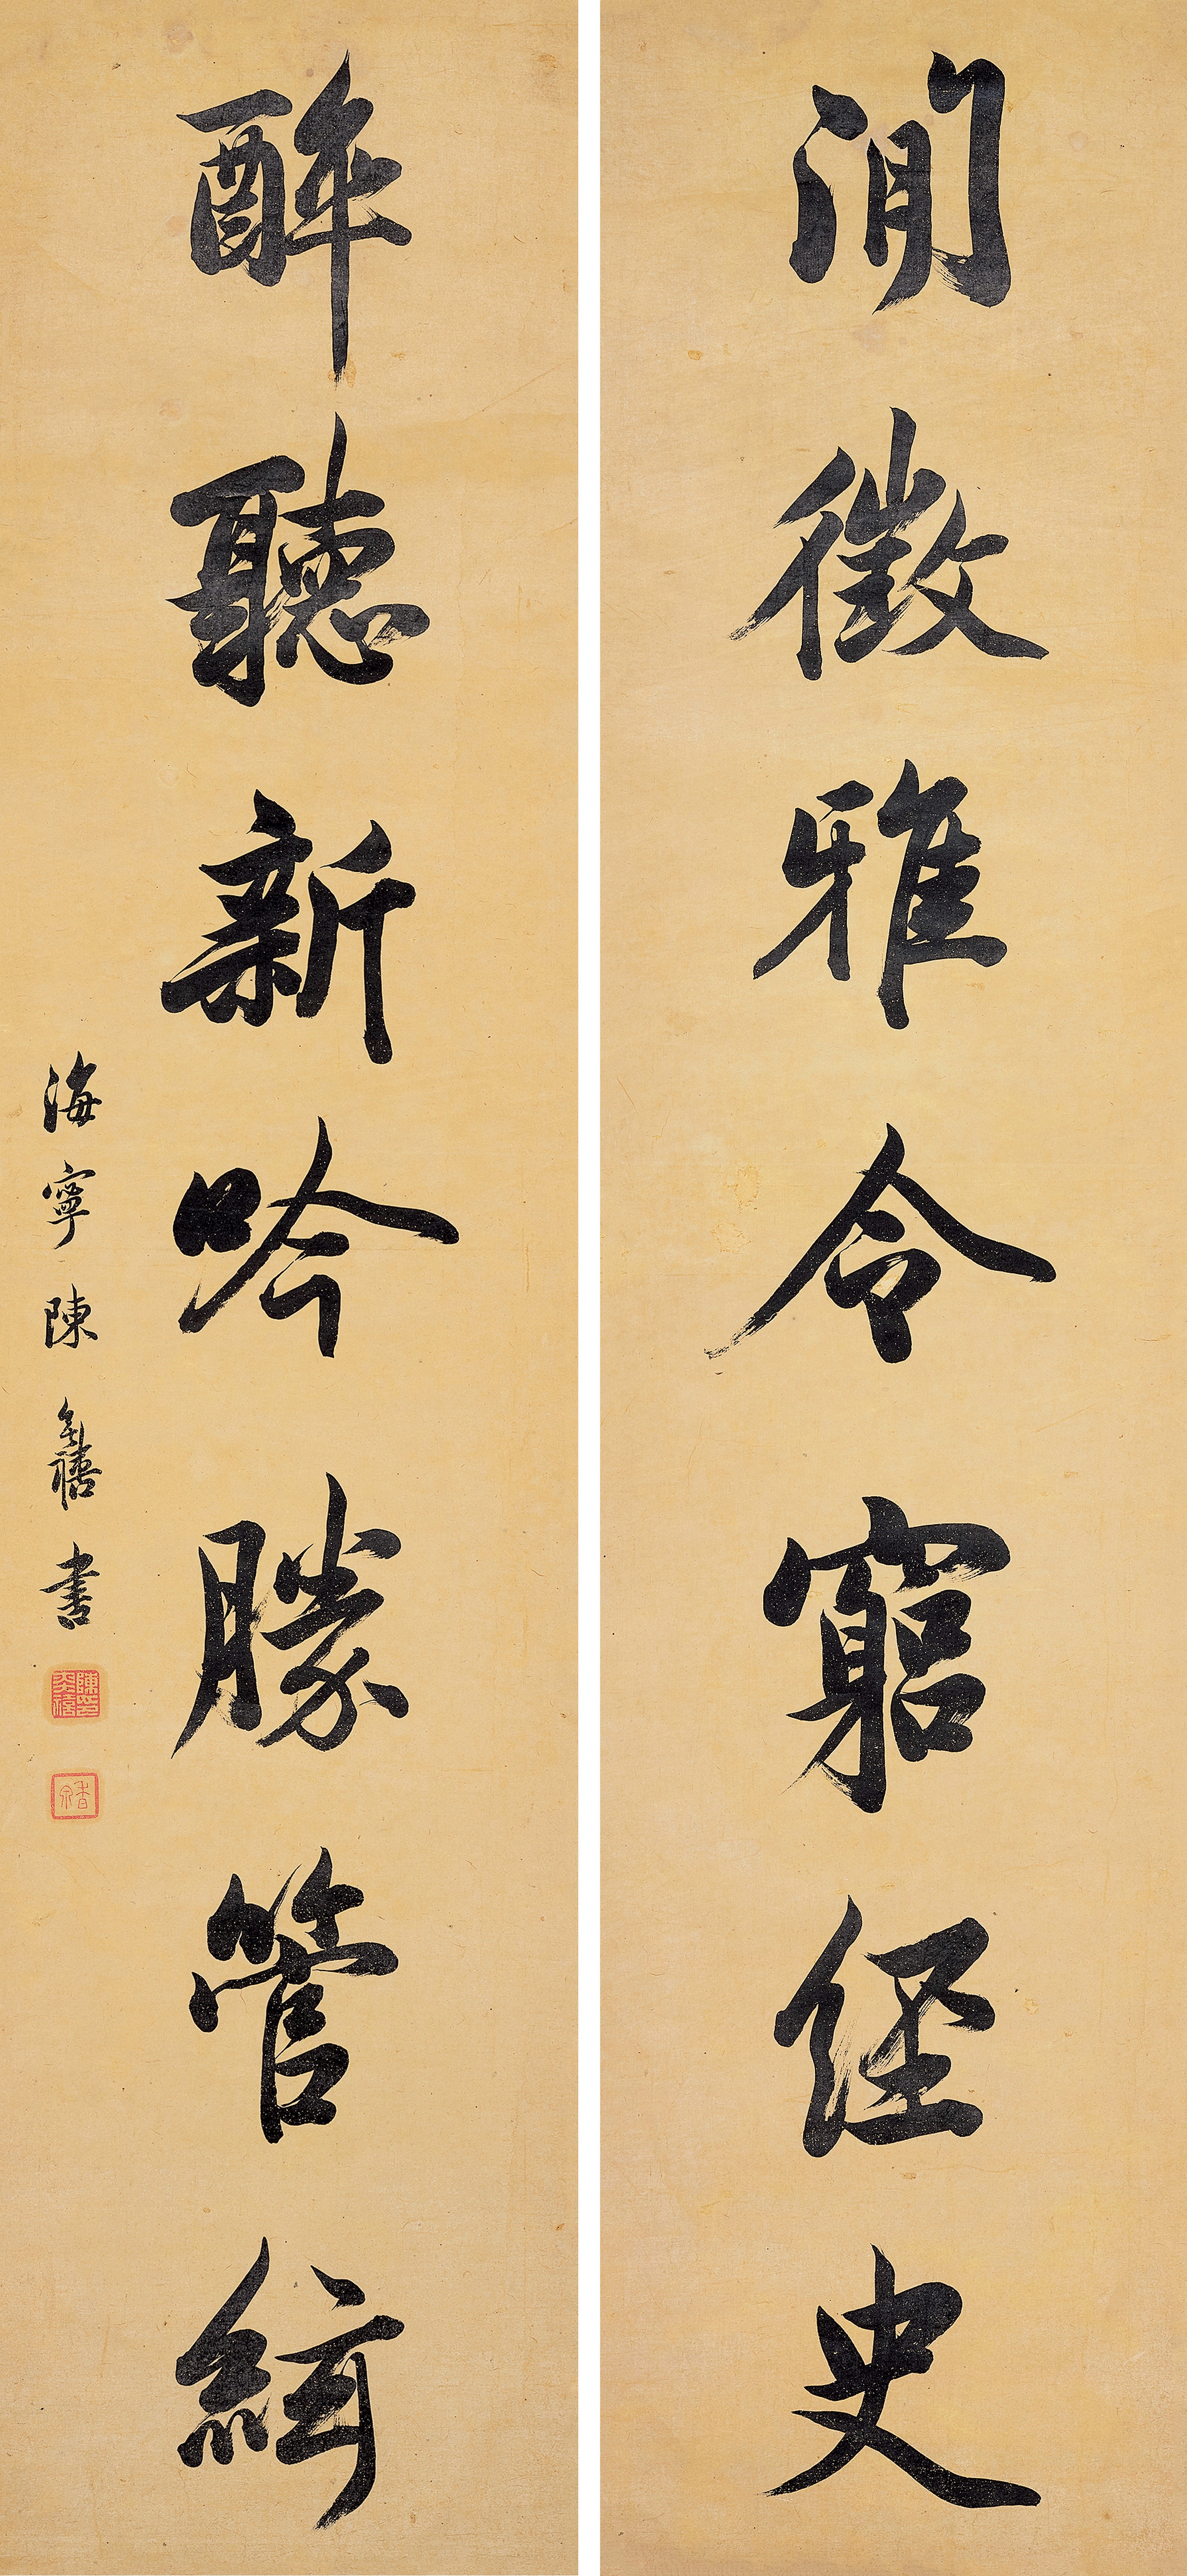 閒徵雅令窮經史
醉聽新吟勝管絃
海寧陳奕禧書
陳印奕禧
香泉